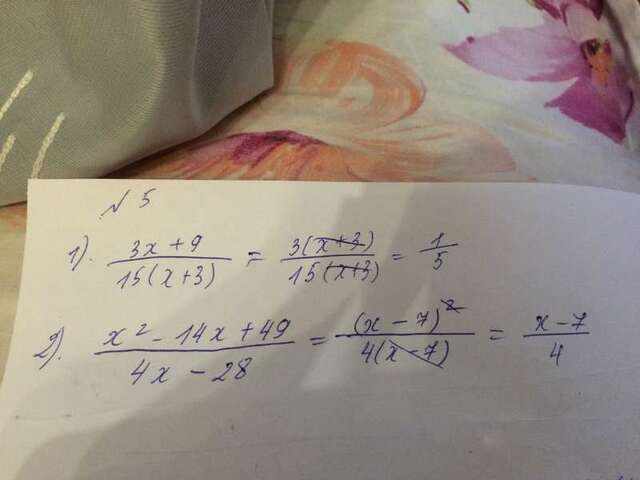 № 5
1). (3x + 9)/(15(x+3)) = (3(x+3))/(15(x+3)) = 1/5
2). (x² - 14x + 49)/(4x - 28) = ((x - 7)²)/(4(x - 7)) = (x - 7)/4